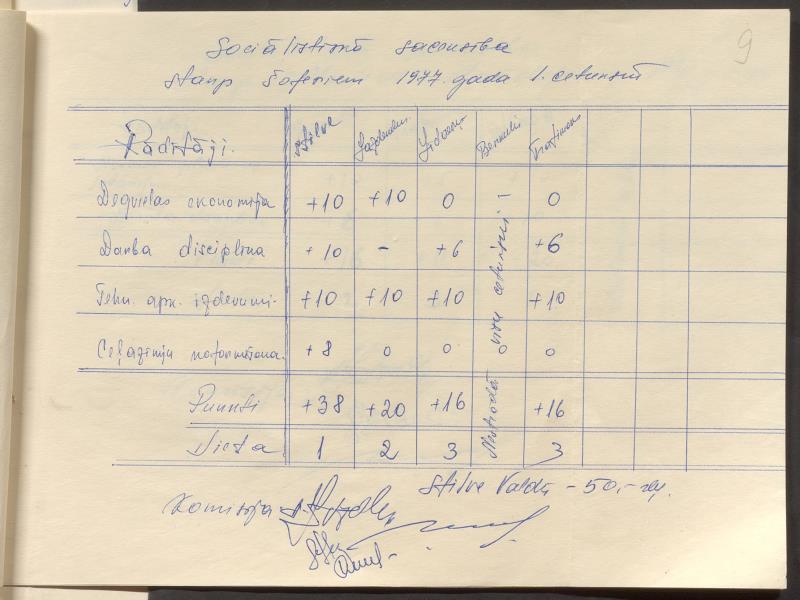 9
Sociālistiskā sacensība
starp šoferiem 1977. gada 1. ceturksnī
Rādītāji. Stilve
Degvielas ekonomija +10 +10 0 0
Darba disciplīna +10 - +6 +6
Tehn. apk. izdevumi. +10 +10 +10 +10
Ceļazīmju noformēšana. +8 0 0 0
Punkti +38 +20 +16 +16
Vieta 1 2 3 3
Nestrādā visu ceturksni!
Stilve Valdis - 50,-
Komisija